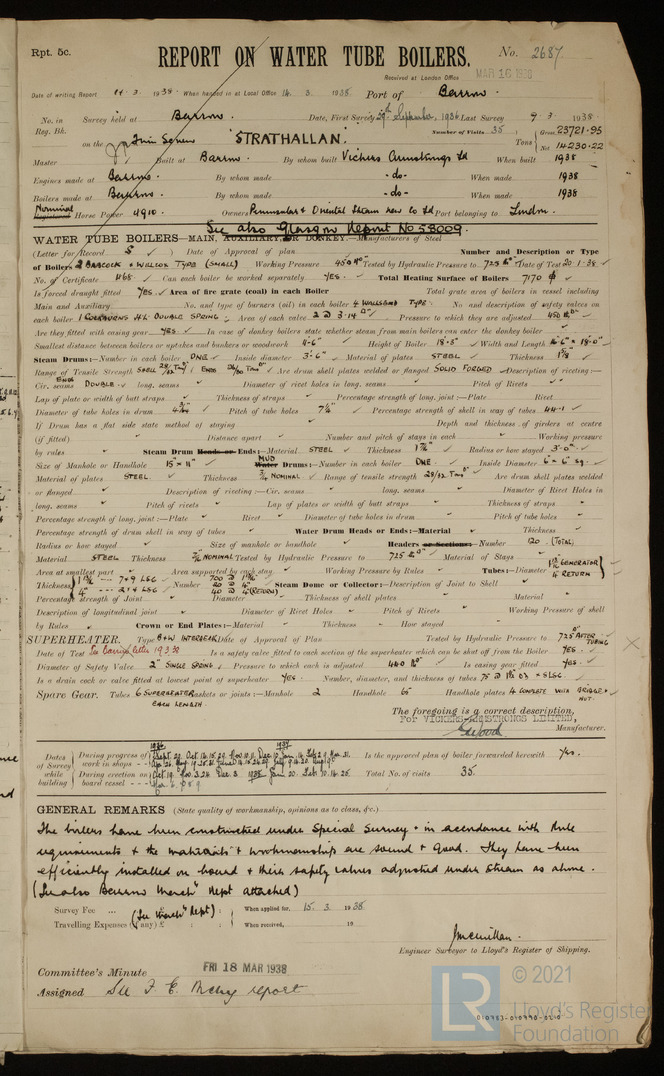 Rpt. 5c.
REPORT ON WATER TUBE BOILERS.
No. 2687
Received at London Office
MAR 16 1938
Date of writing Report 11.3.1938 When handed in at Local Office 14.3.1938 Port of Barrow.
No. in Survey held at Barrow. Date, First Survey 29th September, 1936 Last Survey 9.3.1938
Reg. Bk. Number of Visits 35
on the Twin Screw "STRATHALLAN". Tons Gross 23721.95
Net 14230.22
Master Built at Barrow By whom built Vickers Armstrongs Ld When built 1938
Engines made at Barrow. By whom made -do- When made 1938
Boilers made at Barrow By whom made -do- When made 1938
Nominal Registered Horse Power 4910. Owners Peninsular & Oriental Steam Nav Co Ld Port belonging to London.
See also Glasgow Report No 58009.
WATER TUBE BOILERS—MAIN, AUXILIARY, OR DONKEY.—Manufacturers of Steel
(Letter for Record S) Date of Approval of plan Number and Description or Type
of Boilers 2 BABCOCK & WILLCOX TYPE (SMALL) Working Pressure 450 Tested by Hydraulic Pressure to 725 Date of Test 20.1.38
No. of Certificate 468. Can each boiler be worked separately YES. Total Heating Surface of Boilers 7170
Is forced draught fitted YES. Area of fire grate (coal) in each Boiler Total grate area of boilers in vessel including
Main and Auxiliary No. and type of burners (oil) in each boiler 4 WALLSEND TYPE. No. and description of safety valves on
each boiler 1 COCKBURNS H.L. DOUBLE SPRING Area of each valve 2 @ 3.14 Pressure to which they are adjusted 450
Are they fitted with easing gear YES. In case of donkey boilers state whether steam from main boilers can enter the donkey boiler
Smallest distance between boilers or uptakes and bunkers or woodwork 4'-6" Height of Boiler 18'-3" Width and Length 6'6" x 18'-0"
Steam Drums:—Number in each boiler ONE Inside diameter 3'.6" Material of plates STEEL Thickness
Range of Tensile Strength SHELL 28/32 Tons ENDS 26/30 Tons Are drum shell plates welded or flanged SOLID FORGED Description of riveting:—
Cir. seams ENDS DOUBLE long. seams Diameter of rivet holes in long. seams Pitch of Rivets
Lap of plate or width of butt straps Thickness of straps Percentage strength of long. joint:—Plate Rivet
Diameter of tube holes in drum Pitch of tube holes 7¼" Percentage strength of shell in way of tubes 44.1
If Drum has a flat side state method of staying Depth and thickness of girders at centre
(if fitted) Distance apart Number and pitch of stays in each Working pressure
by rules Steam Drum Heads or Ends:—Material STEEL Thickness Radius or how stayed 3'.0"
Size of Manhole or Handhole 15" x 11" MUD Water Drums:—Number in each boiler ONE. Inside Diameter 6" x 6" sq.
Material of plates STEEL. Thickness NOMINAL Range of tensile strength 28/32 Tons Are drum shell plates welded
or flanged Description of riveting:—Cir. seams long. seams Diameter of Rivet Holes in
long. seams Pitch of rivets Lap of plates or width of butt straps Thickness of straps
Percentage strength of long. joint:—Plate Rivet Diameter of tube holes in drum Pitch of tube holes
Percentage strength of drum shell in way of tubes Water Drum Heads or Ends:—Material Thickness
Radius or how stayed Size of manhole or handhole Headers or Sections:—Number 20. (TOTAL)
Material STEEL Thickness NOMINAL Tested by Hydraulic Pressure to 725 Material of Stays
Area at smallest part Area supported by each stay Working Pressure by Rules Tubes:—Diameter GENERATOR
4" RETURN
Thickness 7+9 LSG Number 700 @
4" 2+4 LSG 20 @ 4" Steam Dome or Collector:—Description of Joint to Shell
Percentage Strength of Joint 40 @ 4" (RETURN) Diameter Thickness of shell plates Material
Description of longitudinal joint Diameter of Rivet Holes Pitch of Rivets Working Pressure of shell
by Rules Crown or End Plates:—Material Thickness How stayed
SUPERHEATER. Type B+W INTERDECK Date of Approval of Plan Tested by Hydraulic Pressure to 725 AFTER TUBING
Date of Test See Barrow letter 19.3.38 Is a safety valve fitted to each section of the superheater which can be shut off from the Boiler YES.
Diameter of Safety Valve 2" SINGLE SPRING Pressure to which each is adjusted 440 Is easing gear fitted YES.
Is a drain cock or valve fitted at lowest point of superheater YES Number, diameter, and thickness of tubes
Spare Gear. Tubes 6 SUPERHEATER EACH LENGTH. Gaskets or joints:—Manhole 2 Handhole 65 Handhole plates 4 COMPLETE WITH BRIDGE & NUT.
The foregoing is a correct description,
FOR VICKERS-ARMSTRONGS LIMITED,
Manufacturer.
Dates of Survey while building
During progress of work in shops
During erection on board vessel
1936
1937
1938
Is the approved plan of boiler forwarded herewith Yes.
Total No. of visits 35.
GENERAL REMARKS (State quality of workmanship, opinions as to class, &c.)
The boilers have been constructed under Special Survey & in accordance with Rule
requirements & the materials & workmanship are sound & good. They have been
efficiently installed on board & their safety valves adjusted under steam as above.
(See also Barrow Mach'y Rept attached)
Survey Fee (See Mach'y Rept) When applied for, 15.3.1938
Travelling Expenses (if any) £ : : When received, 19
J McMillan.
Engineer Surveyor to Lloyd's Register of Shipping.
Committee's Minute FRI 18 MAR 1938
Assigned See F. E. Mchy report
010983-010990-0210
LR
© 2021
Lloyd's Register
Foundation